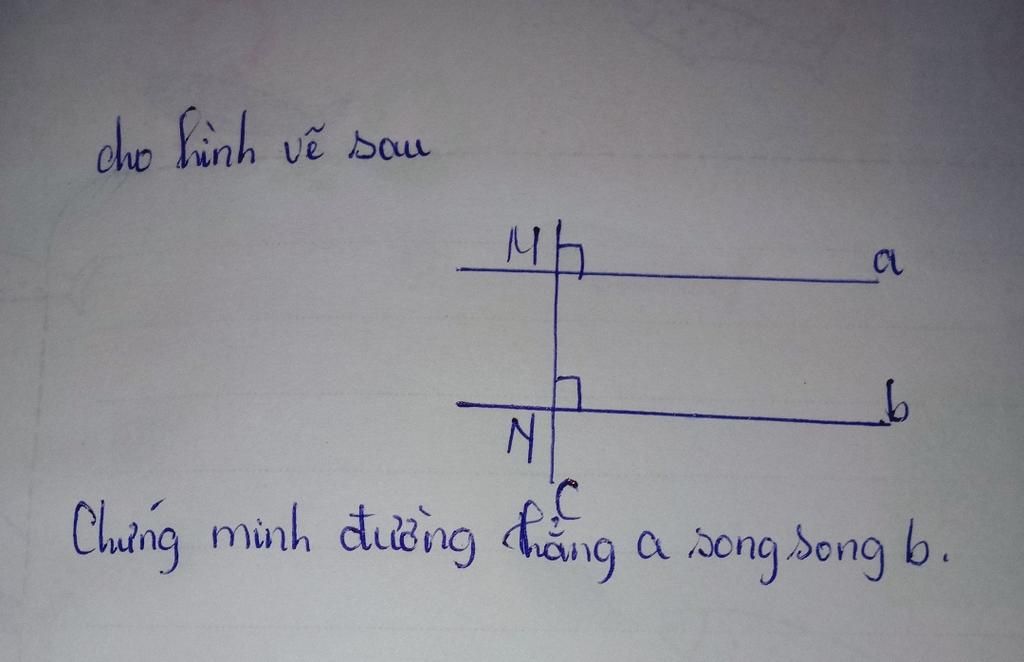 cho hình vẽ sau
M a
b
N
C
Chứng minh đường thẳng a song song b.